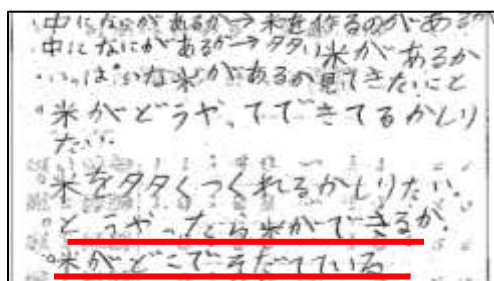 ・中になにがあるか→米を作るのがあるか
・中になにがあるか→タタリ米があるか
・いっぱいな米があるか見てきたいこと
・米がどうやってできてるかしり
たい。
・米をタタくつくれるかしりたい。
・どうやったら米ができるか。
・米がどこでそだてている